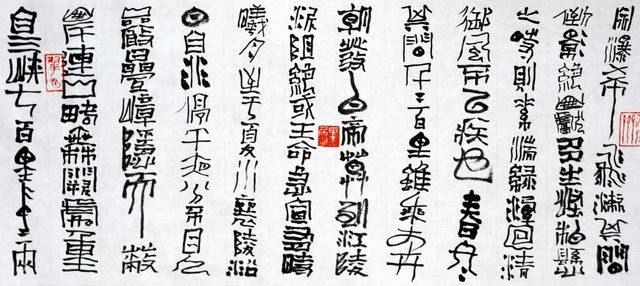 自三峽七百里中兩
岸連山略無闕處重
巖疊嶂隱天蔽
日自非停午夜分不見
曦月至于夏水襄陵沿
泝阻絕或王命急宣有時
朝發白帝暮到江陵
其間千二百里雖乘奔
御風不以疾也春冬
之時則素湍綠潭回清
倒影絕巘多生怪柏懸
瀑布飛漱其間